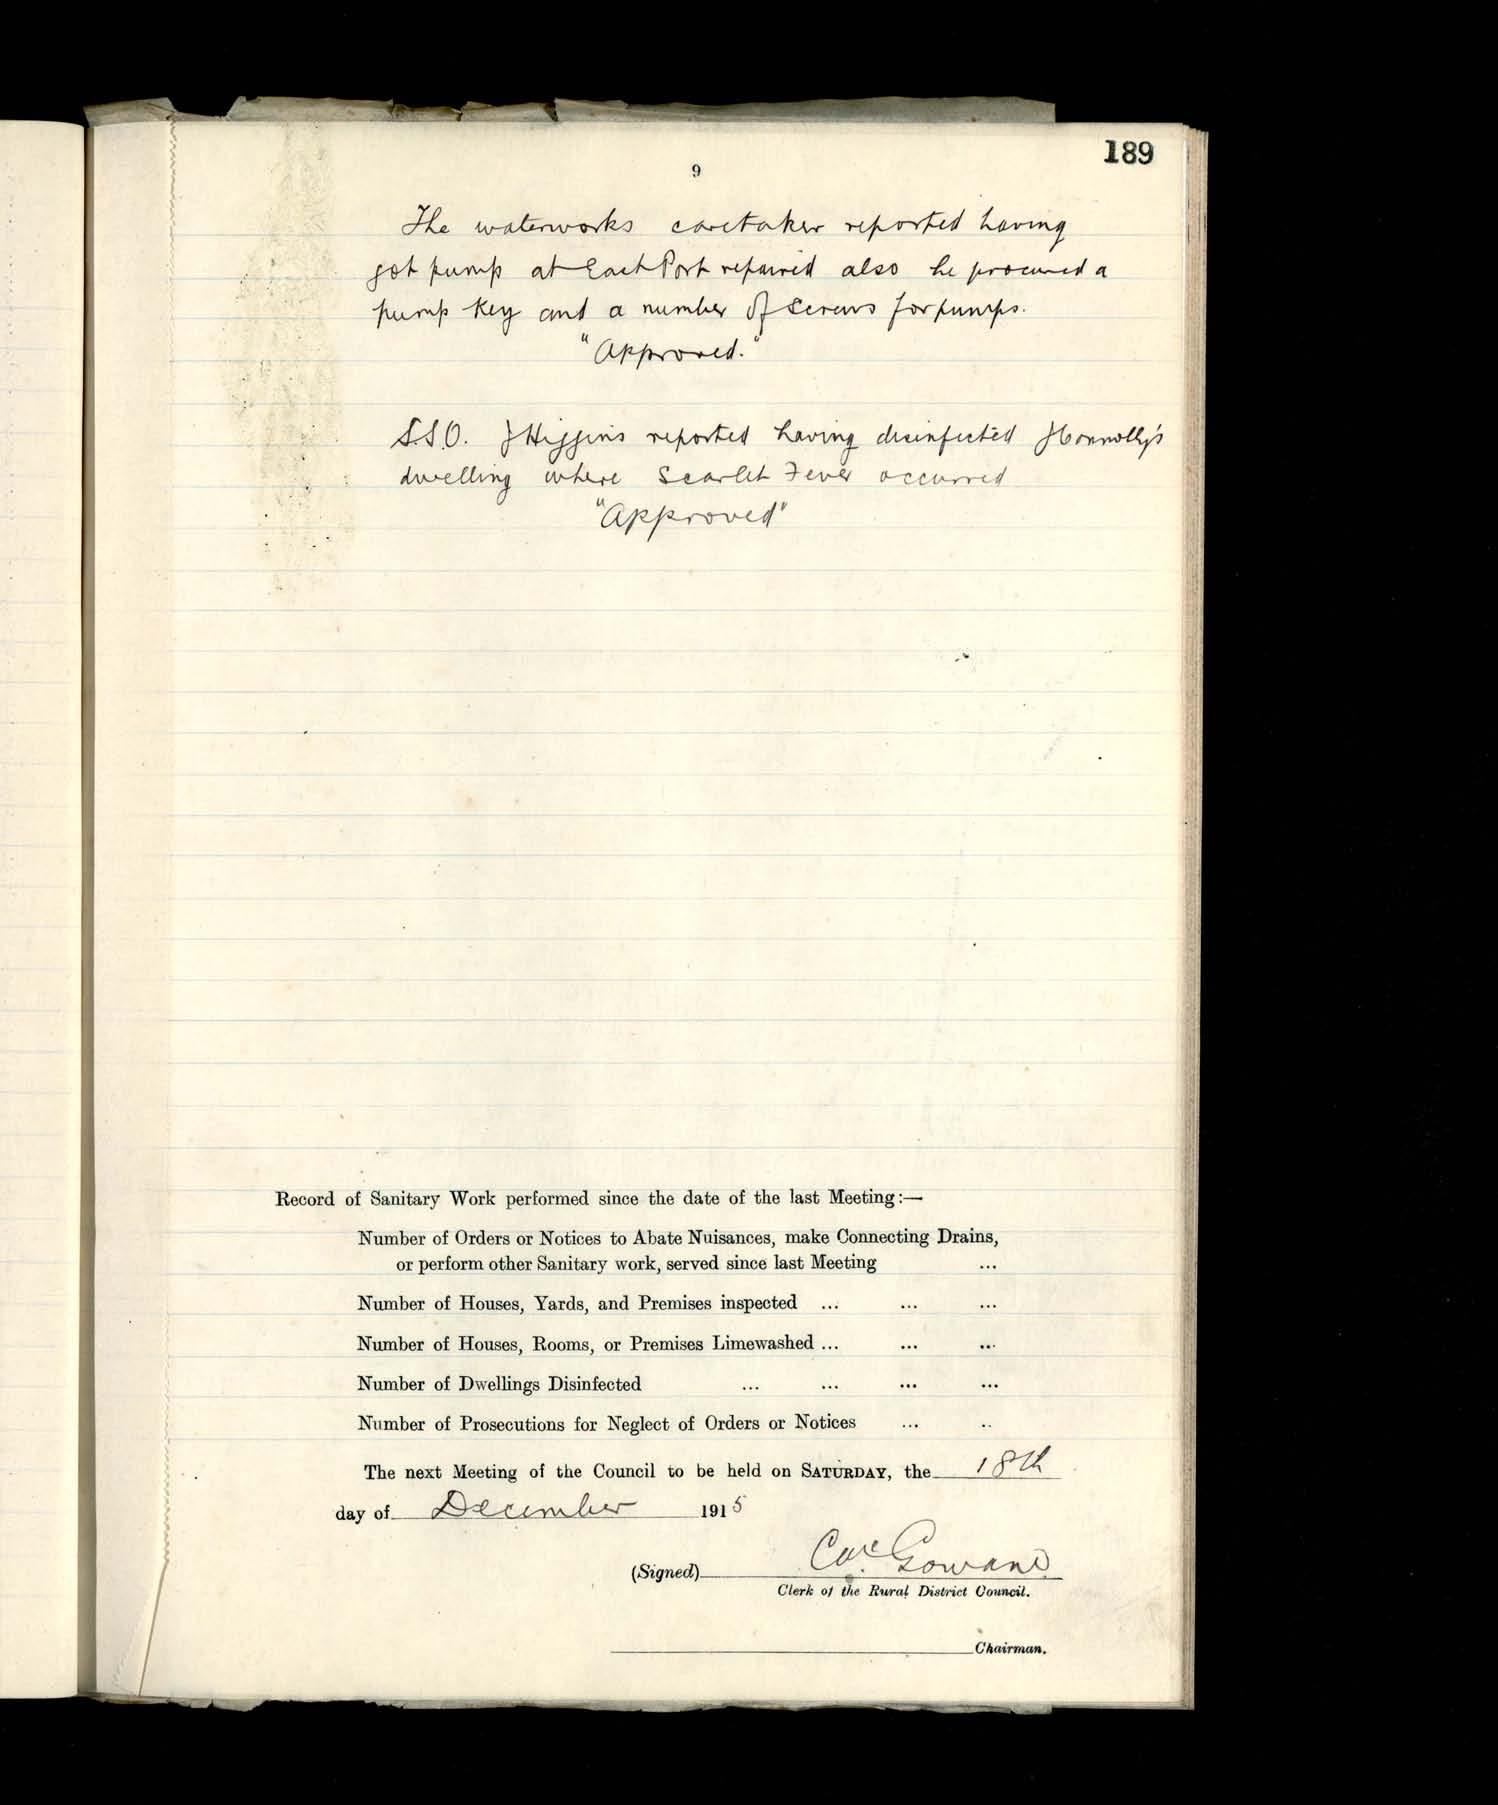 189
9
The waterworks caretaker reported having
got pump at East Port repaired also he procured a
pump key and a number of screws for pumps.
"Approved."
S.S.O. J Higgins reported having disinfected J Connolly's
dwelling where Scarlet Fever occurred
"Approved"
Record of Sanitary Work performed since the date of the last Meeting:—
Number of Orders or Notices to Abate Nuisances, make Connecting Drains,
or perform other Sanitary work, served since last Meeting ...
Number of Houses, Yards, and Premises inspected ... ... ...
Number of Houses, Rooms, or Premises Limewashed ... ... ...
Number of Dwellings Disinfected ... ... ... ...
Number of Prosecutions for Neglect of Orders or Notices ... ..
The next Meeting of the Council to be held on SATURDAY, the 18th
day of December 1915
(Signed) Gowan
Clerk of the Rural District Council.
Chairman.